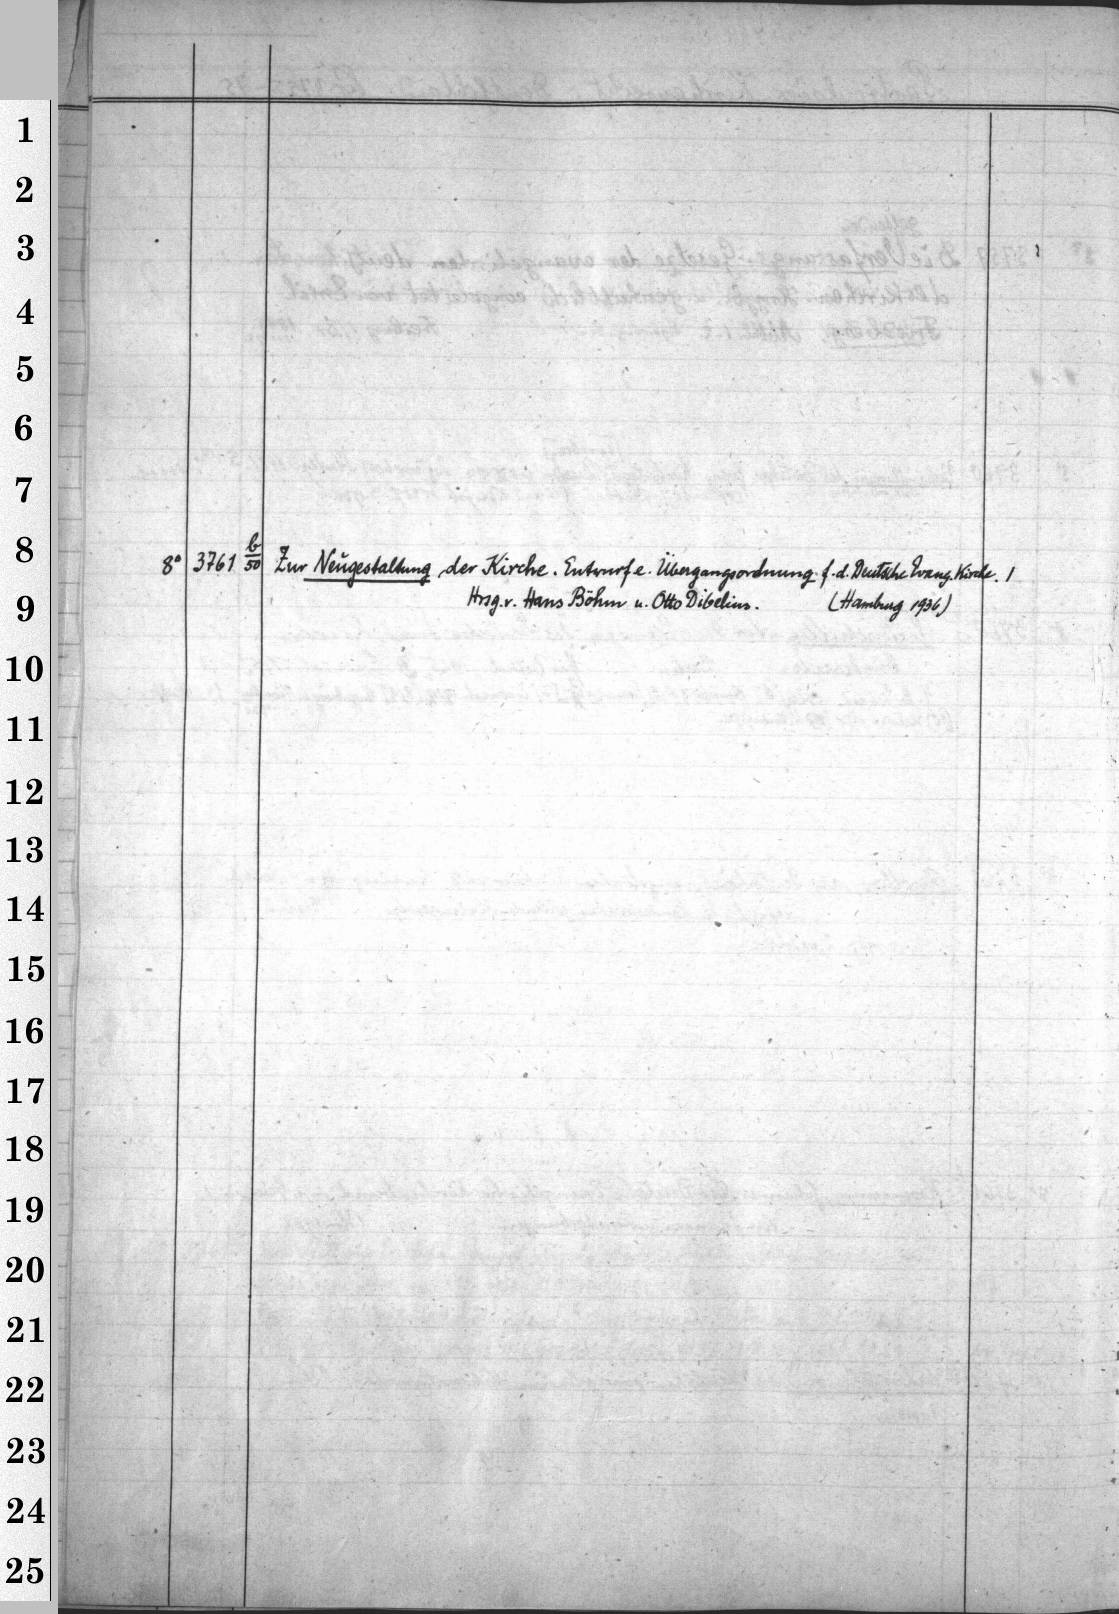 1
2
3
4
5
6
7
8
8° 3761 b/50 Zur Neugestaltung der Kirche. Entwurf e. Übergangsordnung f. d. Deutsche Evang. Kirche. 1
9
Hrsg. v. Hans Böhm u. Otto Dibelius. (Hamburg 1936)
10
11
12
13
14
15
16
17
18
19
20
21
22
23
24
25